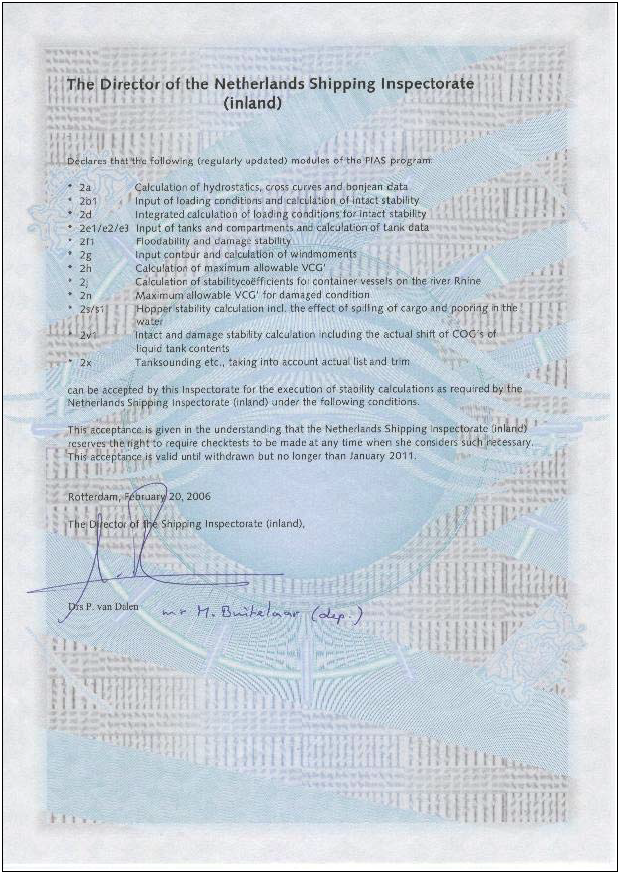 The Director of the Netherlands Shipping Inspectorate
(inland)
Declares that the following (regularly updated) modules of the PIAS program:
* 2a Calculation of hydrostatics, cross curves and bonjean data
* 2b1 Input of loading conditions and calculation of intact stability
* 2d Integrated calculation of loading conditions for intact stability
* 2e1/e2/e3 Input of tanks and compartments and calculation of tank data
* 2f1 Floodability and damage stability
* 2g Input contour and calculation of windmoments
* 2h Calculation of maximum allowable VCG'
* 2j Calculation of stabilitycoëfficients for container vessels on the river Rhine
* 2n Maximum allowable VCG' for damaged condition
* 2s/s1 Hopper stability calculation incl. the effect of spilling of cargo and pooring in the
water
* 2v1 Intact and damage stability calculation including the actual shift of COG's of
liquid tank contents
* 2x Tanksounding etc., taking into account actual list and trim
can be accepted by this Inspectorate for the execution of stability calculations as required by the
Netherlands Shipping Inspectorate (inland) under the following conditions.
This acceptance is given in the understanding that the Netherlands Shipping Inspectorate (inland)
reserves the right to require checktests to be made at any time when she considers such necessary.
This acceptance is valid until withdrawn but no longer than January 2011.
Rotterdam, February 20, 2006
The Director of the Shipping Inspectorate (inland),
Drs P. van Dalen mr M. Buitelaar (dep.)